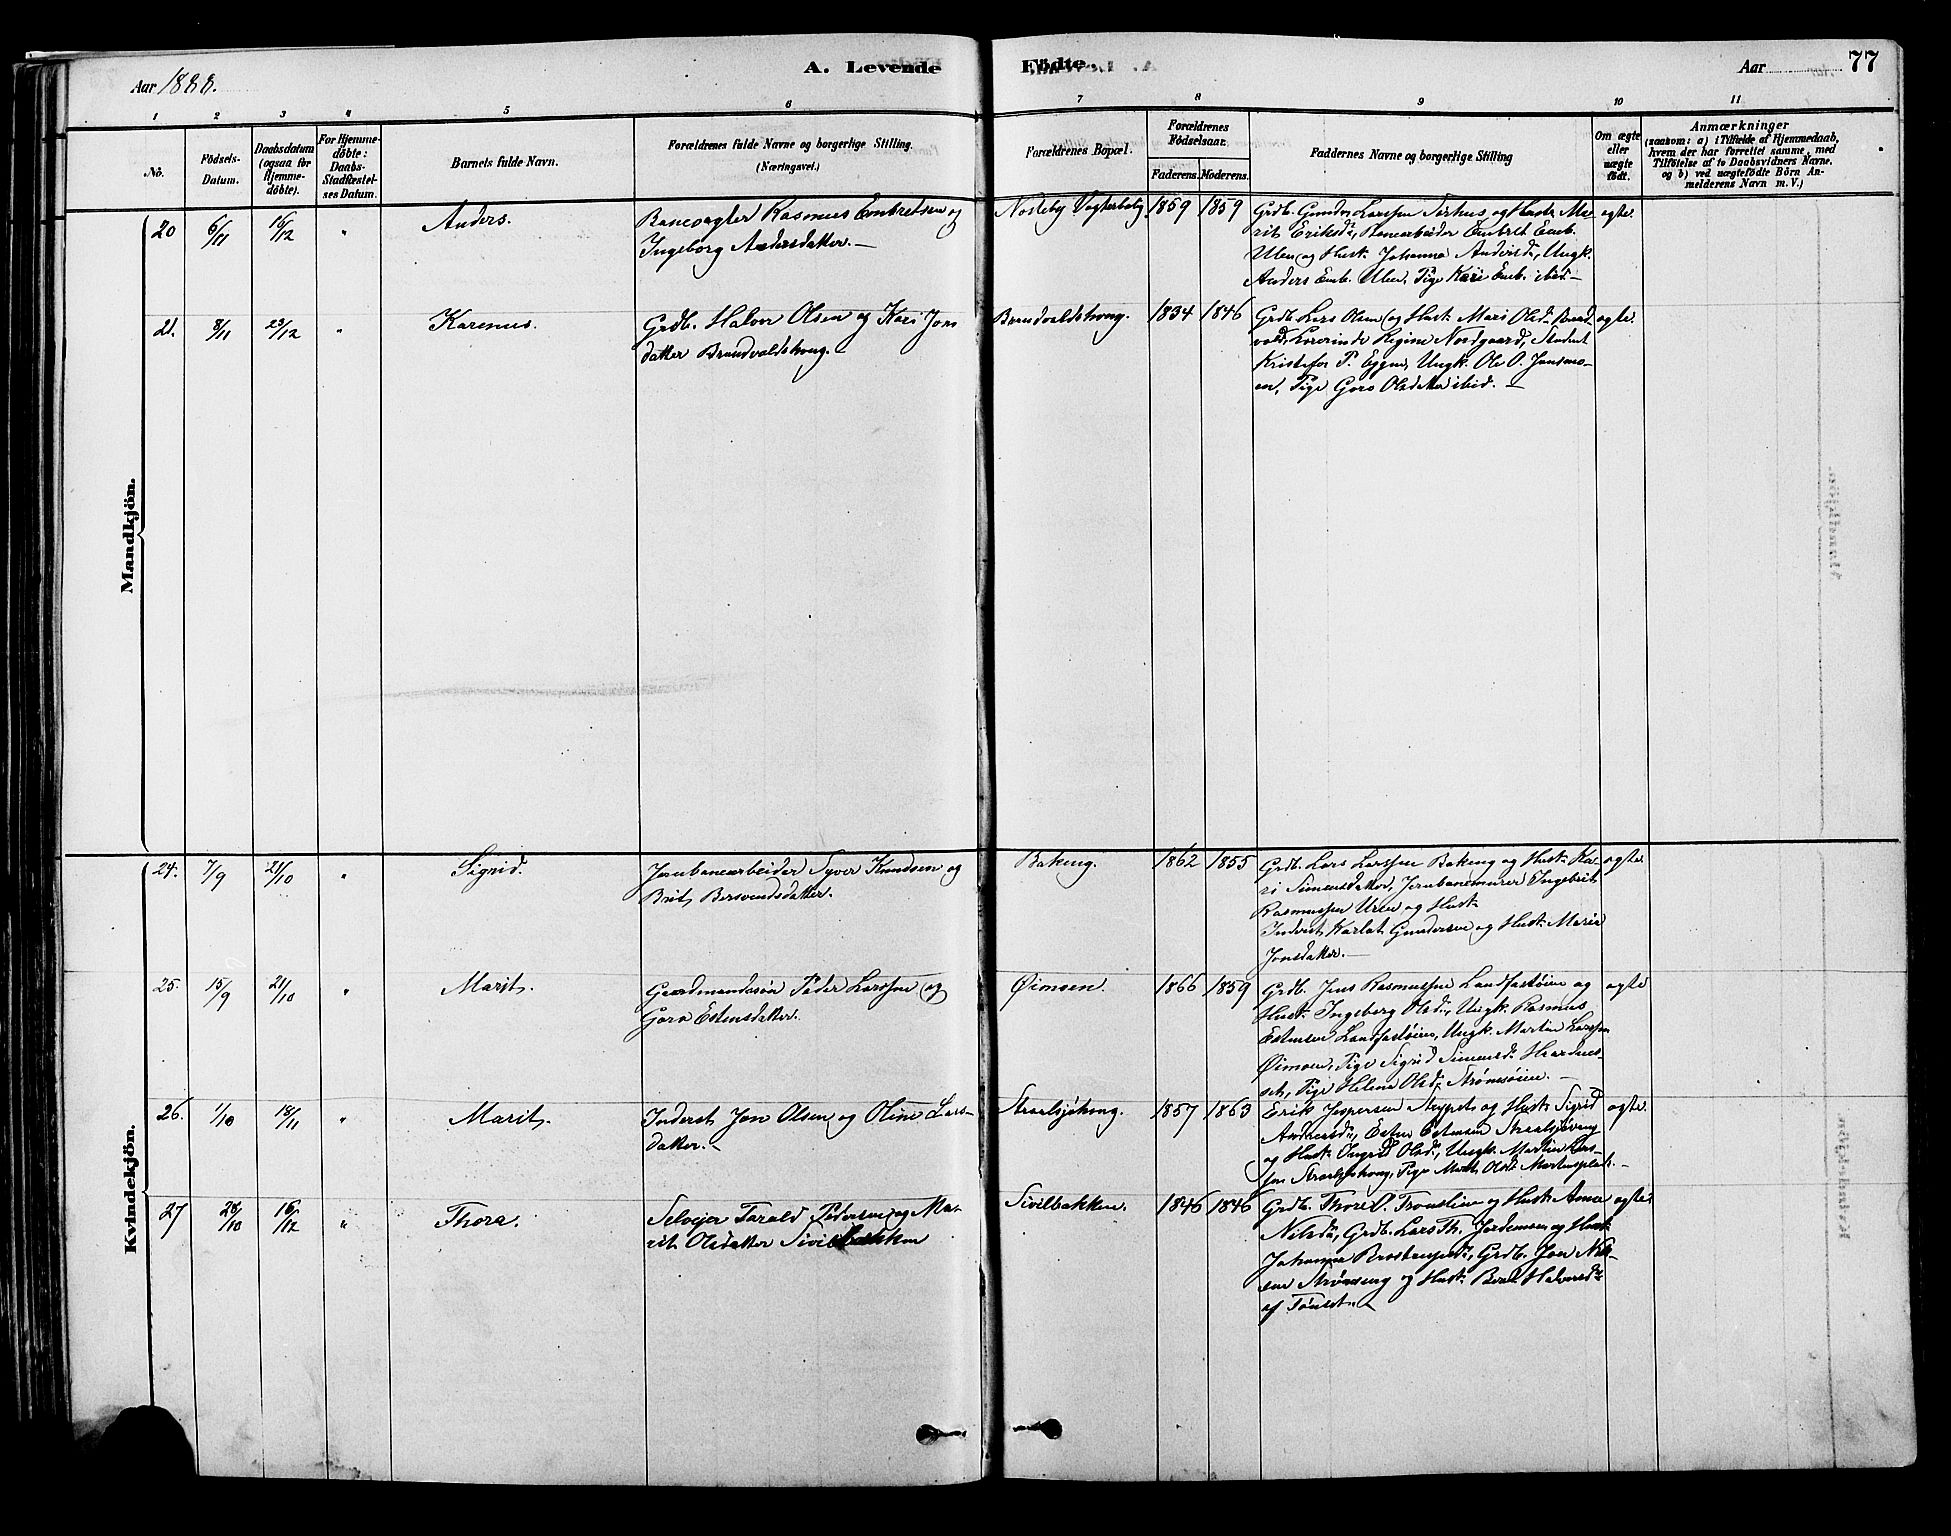 Aar 1888.
A. Levende
Födte.
Aar
77
1
2
3
4
5
6
7
8
9
10
11
No.
Födsels-
Datum.
Daabsdatum
(ogsaa for
Hjemme-
döbte).
For Hjemme-
döbte:
Daabs-
Stadfæstel-
ses Datum.
Barnets fulde Navn.
Forældrenes fulde Navne og borgerlige Stilling.
(Næringsvei.)
Forældrenes Bopæl.
Forældrenes
Födselsaar.
Faderens.
Moderens.
Faddernes Navne og borgerlige Stilling
Om ægte
eller
uægte
födt.
Anmærkninger
(saasom: a) i Tilfælde af Hjemmedaab,
hvem der har forrettet samme, med
Tilföielse af to Daabsvidners Navne.
og b) ved uægtefödte Börn An-
melderens Navn m. V.)
Mandkjön.
20
6/11
16/12
"
Anders.
Banevogter Rasmus Embretsen og
Ingeborg Andersdatter.
Nosteby Vogterbolig
1859
1859
Grdb. Gunder Larssen Aarhus og Hustr. Ma-
rit Eriksd., Banearbeider Embret Emb.
Ulen og Hust. Johanna Andersd., Ungk.
Anders Emb. Ulen, Pige Kari Emb. ibid
ægte
21.
8/11
23/12
"
Karenus.
Grdb. Halvor Olsen og Kari Jons
datter Brandvoldshaug.
Brandvoldshaug.
1834
1846
Grdb. Lars Olsen og Hust. Mari Olsd. Brand
vold, Lærerinde Regine Nordgaard, Student
Kristofer P. Eggen, Ungk. Ole O. Jonsmo-
en, Pige Goro Olsdatter ibid.
ægte.
Kvindekjön.
24.
7/9
21/10
"
Sigrid.
Jernbanearbeider Syver Knudsen og
Brit Bersvendsdatter.
Bakeng.
1862
1855
Grdb. Lars Larssen Bakeng og Hust. Ka-
ri Simensdatter, Jernbanemurer Ingebrit
Rasmussen Uren og Hust.
Inderst Karlat Gundersen og Hust. Marie
Jonsdatter.
ægte
25.
15/9
21/10
"
Marit.
Gaardmandssøn Peder Larssen og
Goro Estensdatter.
Øimoen.
1866
1859
Grdb. Jens Rasmussen Landfastøien og
Hust. Ingeborg Olsd., Ungk. Rasmus
Estensen Landfastøien, Ungk. Martin Larssen
Øimoen, Pige Sigrid Simensd. Haardnes-
set, Pige Helena Olsd. Strømsøien.
ægte
26.
1/10
18/11
"
Marit.
Inderst Jon Olsen og Oline Lars-
datter.
Straalsjøhaug.
1857
1863
Erik Jespersen Neypet og Hust. Sigrid
Andersd., Esten Estensen Straalsjøeng
og Hust. Ingrid Olsd., Ungk. Martin Lars-
sen Straalsjøhaug, Pige Marit Olsd. Mortensplads.
ægte.
27
28/10
16/12
"
Thora.
Selveier Tarald Pedersen og Ma-
rit Olsdatter Sivilbakken
Sivilbakken.
1846
1846
Grdb. Thore O. Tronslien og Hust. Anne
Nilsd., Grdb. Lars Th. Jordemoen og Hust.
Johanna Brostrupsd., Grdb. Jon Nil-
sen Strømseng og Hust. Berit Halvorsd.
af Tønset.
ægte.